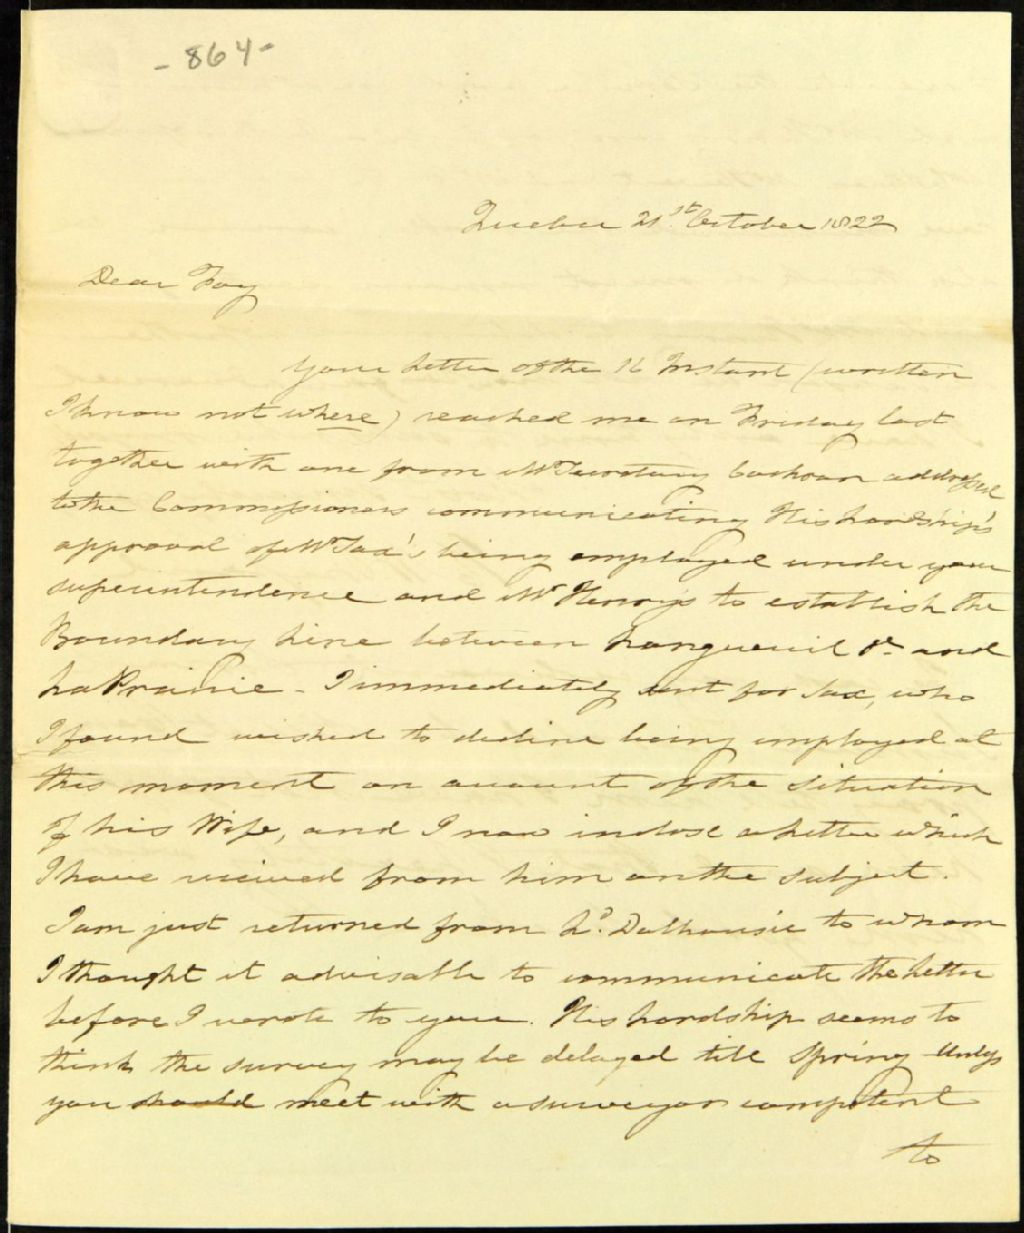 - 864 -
Quebec 21st. October 1822
Dear Foy
Your Letter of the 16 Instant (written
I know not where) reached me on Friday last
together with one from Mr Secretary Cochran addressed
to the Commissioners communicating His Lordship's
approval of Mr Sax's being employed under your
superintendence and Mr Henry's to establish the
Boundary Line between Longueuil &c. and
La Prairie - I immediately sent for Sax, who
I found wished to decline being employed at
this moment on account of the situation
of his Wife, and I now inclose a Letter which
I have received from him on the subject.
I am just returned from Ld. Dalhousie to whom
I thought it advisable to communicate the Letter
before I wrote to you. His Lordship seems to
think the survey may be delayed till Spring Unless
you should meet with a surveyor competent
to